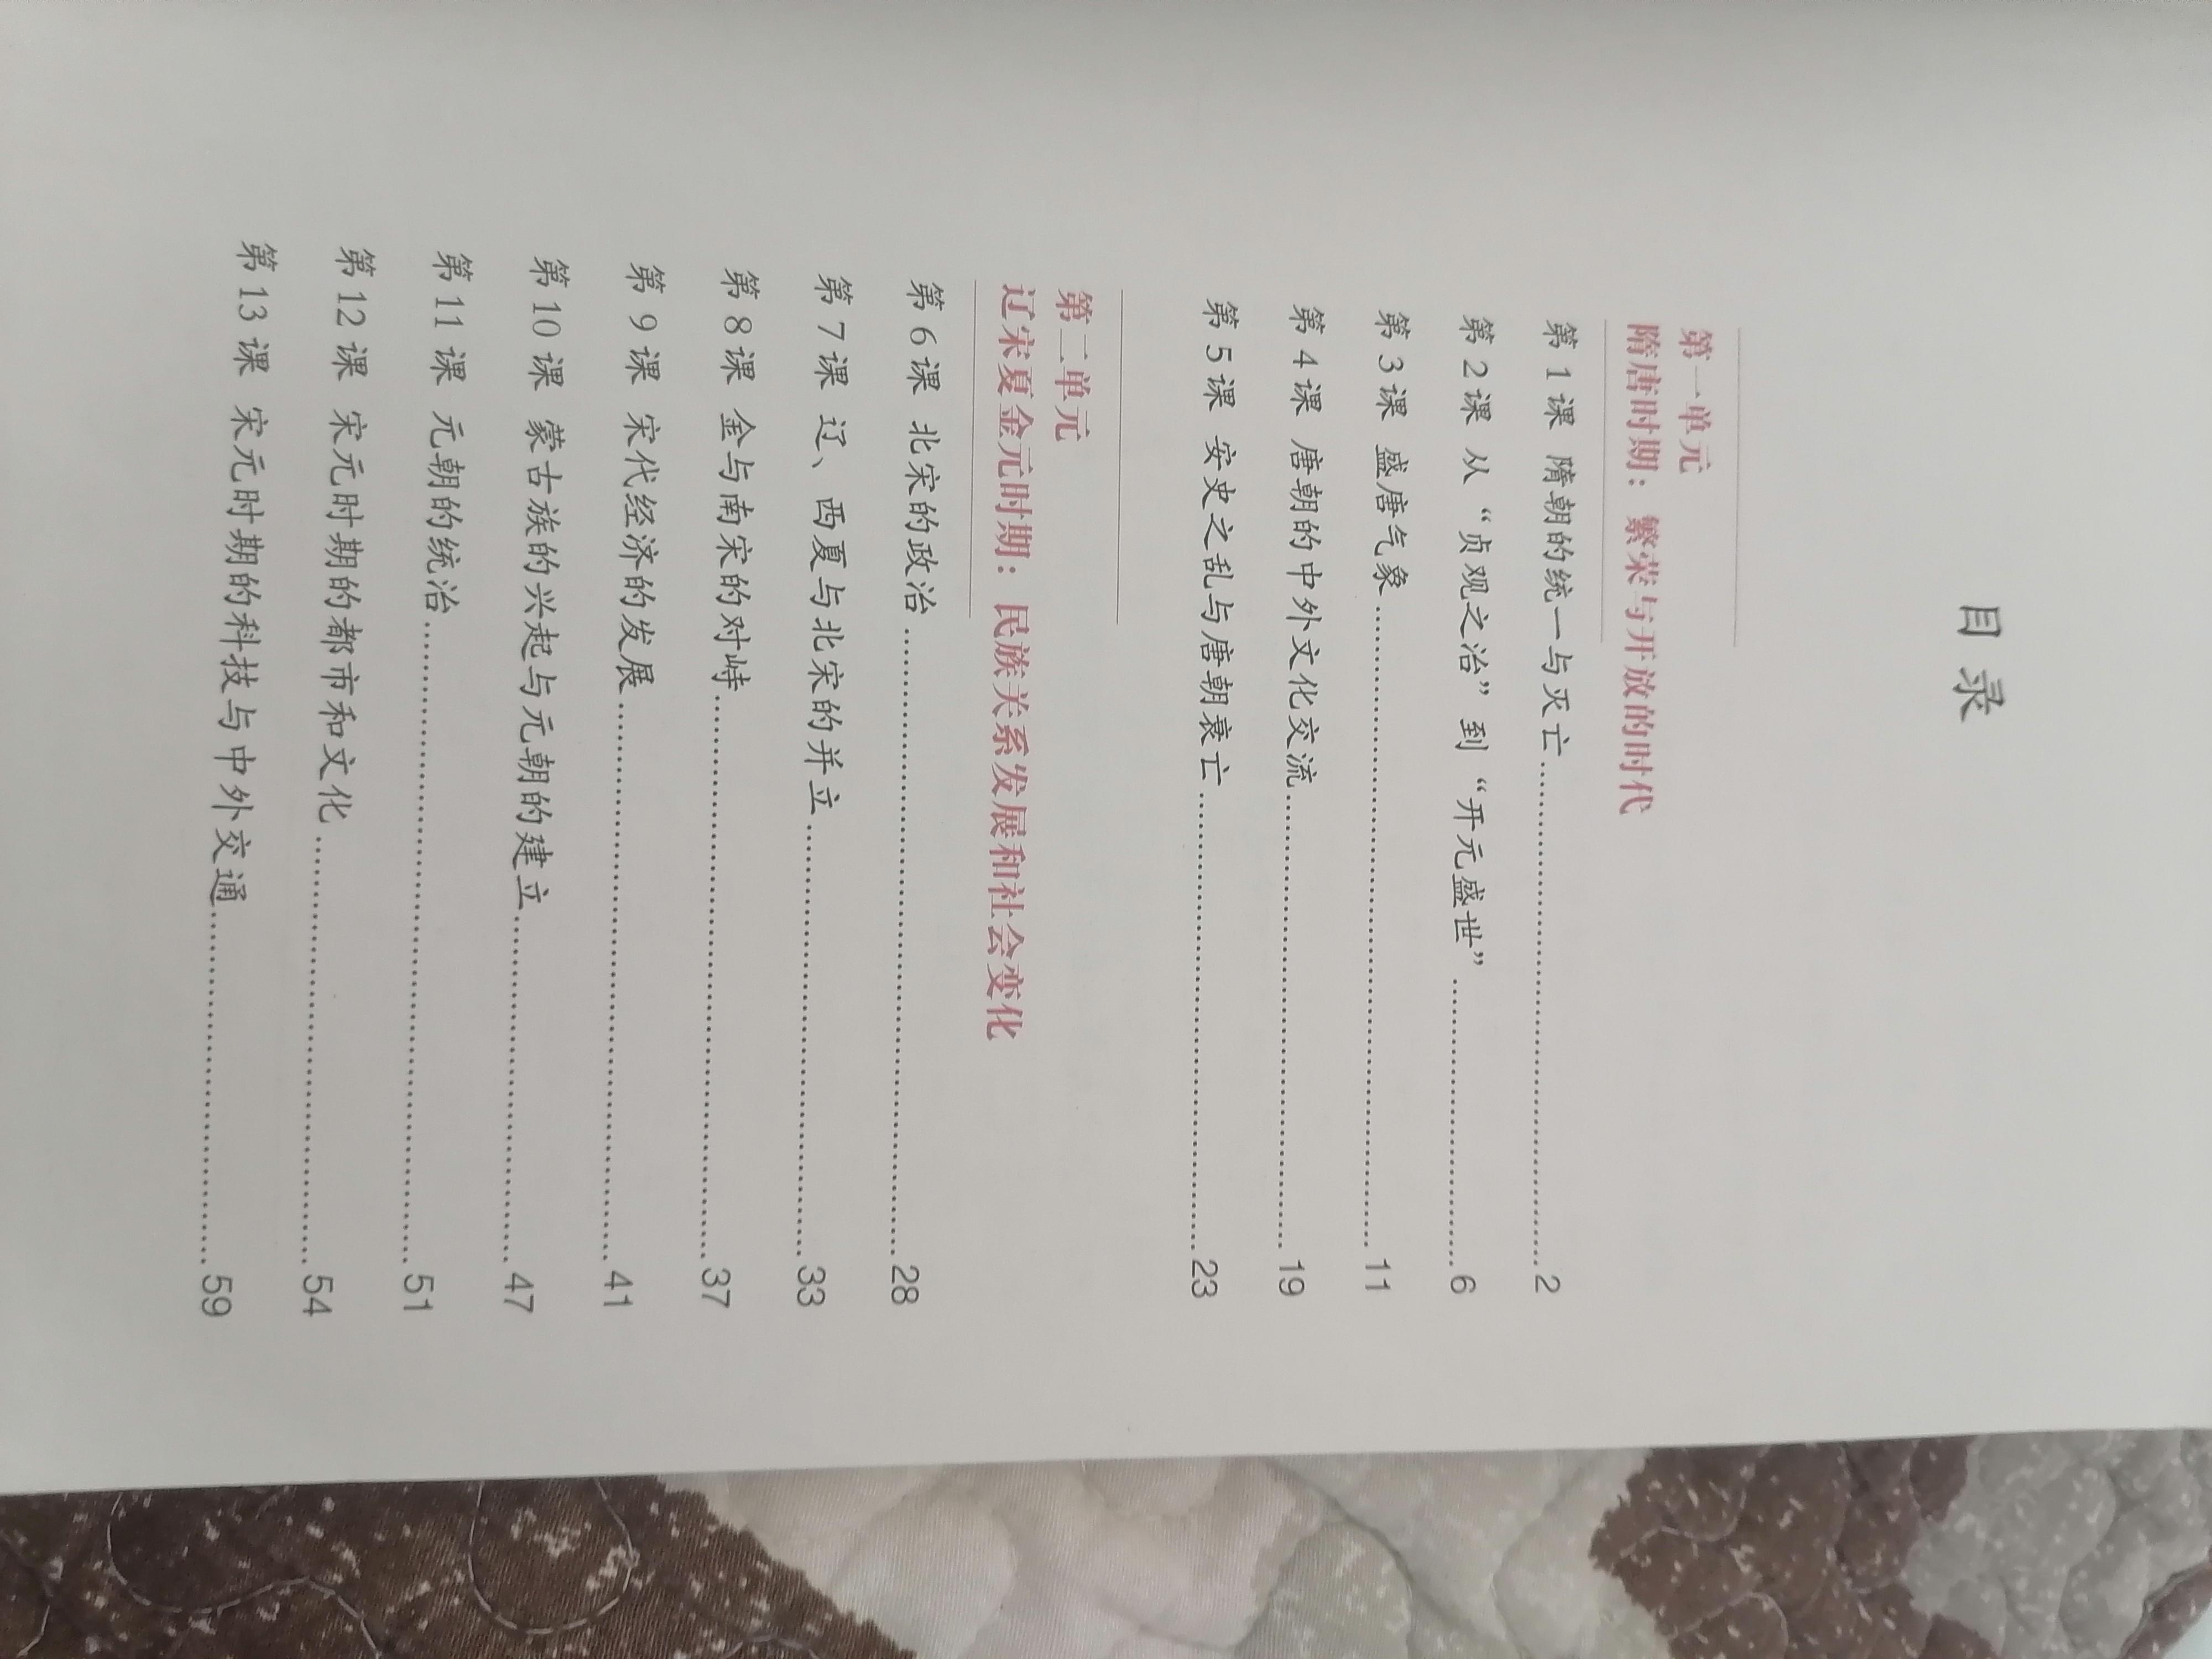 目录
第一单元
隋唐时期：繁荣与开放的时代
第1课 隋朝的统一与灭亡……2
第2课 从“贞观之治”到“开元盛世”……6
第3课 盛唐气象……11
第4课 唐朝的中外文化交流……19
第5课 安史之乱与唐朝衰亡……23
第二单元
辽宋夏金元时期：民族关系发展和社会变化
第6课 北宋的政治……28
第7课 辽、西夏与北宋的并立……33
第8课 金与南宋的对峙……37
第9课 宋代经济的发展……41
第10课 蒙古族的兴起与元朝的建立……47
第11课 元朝的统治……51
第12课 宋元时期的都市和文化……54
第13课 宋元时期的科技与中外交通……59